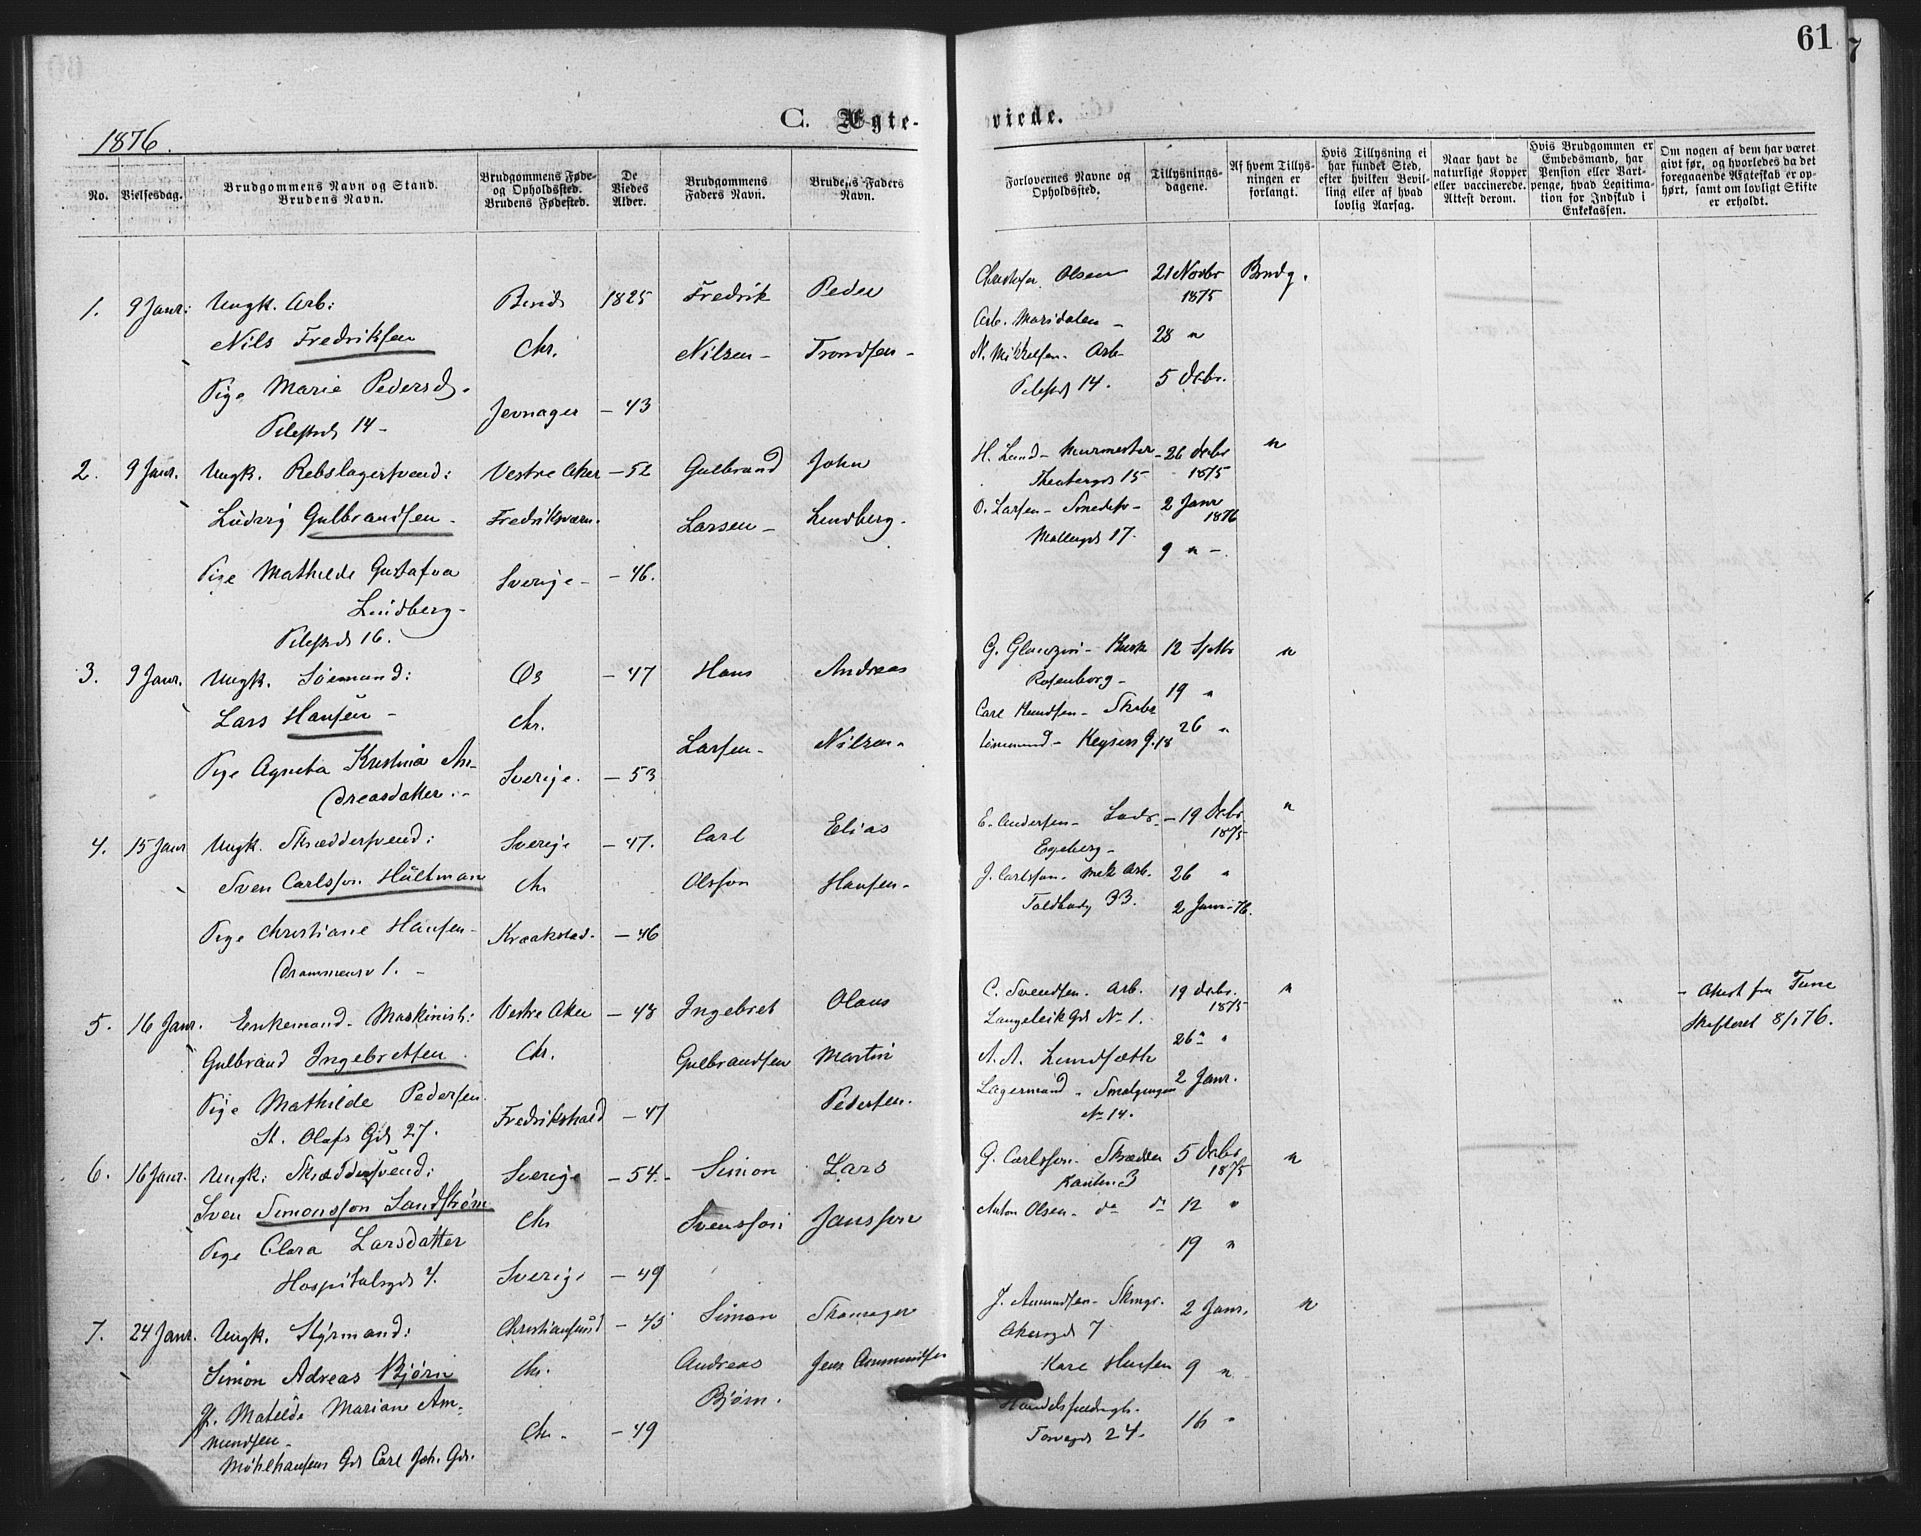 61
7
C. Ægte-
viede.
1876.
No.
Vielsesdag.
Brudgommens Navn og Stand.
Brudens Navn.
Brudgommens Føde-
og Opholdssted.
Brudens Fødested.
De
Viedes
Alder.
Brudgommens
Faders Navn.
Brudens Faders
Navn.
Forlovernes Navne og
Opholdssted.
Tillysnings-
dagene.
Af hvem Tillys-
ningen er
forlangt.
Hvis Tillysning ei
har fundet Sted,
efter hvilken Bevil-
ling eller af hvad
lovlig Aarsag.
Naar havt de
naturlige Kopper
eller vaccinerede.
Attest derom.
Hvis Brudgommen er
Embedsmand, har
Pension eller Vart-
penge, hvad Legitima-
tion for Indskud i
Enkekassen.
Om nogen af dem har været
givt før, og hvorledes da det
foregaaende Ægteskab er op-
hørt, samt om lovligt Skifte
er erholdt.
1. 9 Janr: Ungk. Arb: 1825 Fredrik Peder
Nils Fredriksen Chr. Nilsen - Trondsen -
Pige Marie Pedersd. Jevnager - 43
Pilestrd 14 -
Christofer Olsen 21 Novbr Brudg.
1875
Arb. Maridalen - 28 "
N. Mikkelsen - Arb- 5 Decbr.
Pilestrd 14.
2. 9 Janr. Ungk. Rebslagersvend: Vestre Aker - 52 Gulbrand John
Ludvig Gulbrandsen - Fredriksværn. Larsen - Lindberg.
Pige Mathilde Gustafva Sverige - - 46.
Lindberg -
Pilestrd 16.
H. Lund - Murmester - 26 Decbr "
Theatergd 15 1875
O. Larsen - Smedesv - 2 Janr 1876
Møllergd 17. 9 " -
3. 9 Janr. Ungk. Sømand: Os - 47 Hans Andreas
Lars Hansen - Chr. Larsen - Nilsen -
Pige Agneta Kristina An- Sverige. - 53
dreasdatter. -
12 Septbr "
Rosenborg - 19 "
26 "
Keysers G. 18
4. 15 Janr Ungk. Skræddersvend: Sverige - 47. Carl Elias
Sven Carlsson Hultman Chr Olsson Hansen -
Pige Christiane Hansen - Kraakstad - - 46
Drammensv 1. -
E. Andersen - - 19 Decbr "
Egeberg - 1875
J. Carlsson - mek Arb. 26 "
Toldbodg 33. 2 Janr -76.
5. 16 Janr. Enkemand - Maskinist: Vestre Aker - 48 Ingebret Olaus
Gulbrand Ingebretsen. Chr. Gulbrandsen Martin
Pige Mathilde Pedersen. Fredrikshald - 47 Pedersen.
St. Olafs Gd 27.
C. Svendsen. Arb. 19 Decbr. "
Langeleik Gd No 1. 1875
A. A. 26 "
Lagermand - 2 Janr.
No 14.
- Attest fra Tune
Skifteret 8/1 76.
6. 16 Janr. Ungk: Skræddersvend: Sverige - 54 - Simon Lars
Sven Simonsson Sandstrøm Chr Svensson Jansson
Pige Clara Larsdatter Sverige - 49
Hospitalsgd 4.
G. Carlsson - Skrædder 5 Decbr "
3 1875
Anton Olsen - do do 12 "
19 "
7. 24 Janr. Ungk. Styrmand: Christiansund - 45 Simon
Simon Adreas Bjørn Chr. Andreas Jens Ammundsen
P. Matilde Mariane Am- Chr - - 49 Bjørn.
mundsen -
Møhlhausens Gd Carl Joh. Gd.
J. Amundsen - 2 Janr. "
Akersgd 7
9 "
Torvegd 24. 16 "